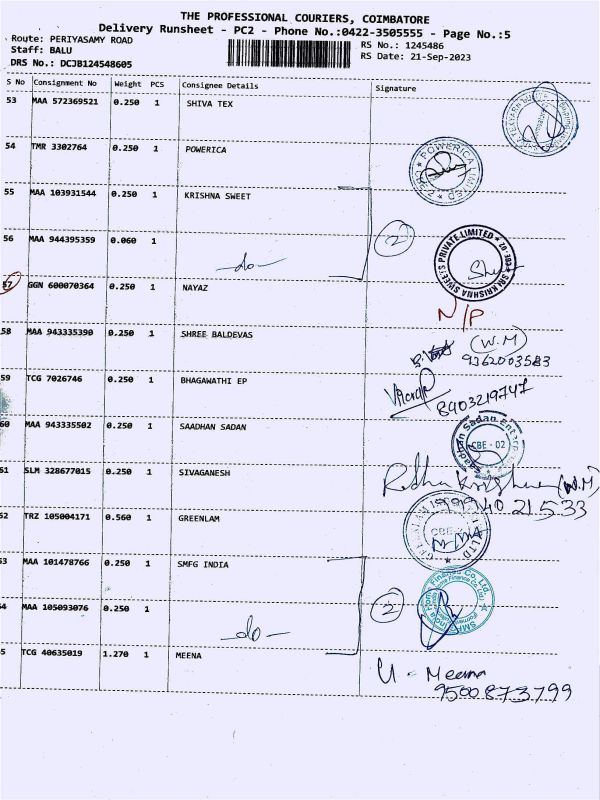 THE PROFESSIONAL COURIERS, COIMBATORE
Delivery Runsheet - PC2 - Phone No.:0422-3505555 - Page No.:5
Route: PERIYASAMY ROAD RS No.: 1245486
Staff: BALU RS Date: 21-Sep-2023
DRS No.: DCJB124548605
S No Consignment No Weight PCS Consignee Details Signature
53 MAA 572369521 0.250 1 SHIVA TEX
54 TMR 3302764 0.250 1 POWERICA
POWERICA LIMITED
55 MAA 103931544 0.250 1 KRISHNA SWEET
2
56 MAA 944395359 0.060 1 -do-
SRI KRISHNA SWEETS PRIVATE LIMITED * CBE. 02 *
57 GGN 600070364 0.250 1 NAYAZ
N/P
58 MAA 943335390 0.250 1 SHREE BALDEVAS (W.M)
9362003583
59 TCG 7026746 0.250 1 BHAGAWATHI EP
8903219747
60 MAA 943335502 0.250 1 SAADHAN SADAN
Saadhan Sadan CBE - 02
51 SLM 328677015 0.250 1 SIVAGANESH (W.M)
52 TRZ 105004171 0.560 1 GREENLAM
53 MAA 101478766 0.250 1 SMFG INDIA
2
54 MAA 105093076 0.250 1 -do-
5 TCG 40635019 1.270 1 MEENA
U. Meena
9500873799